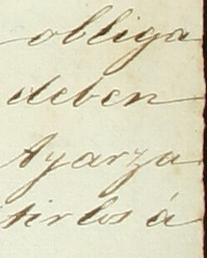 obliga
deben
Ayarza
tirlos á